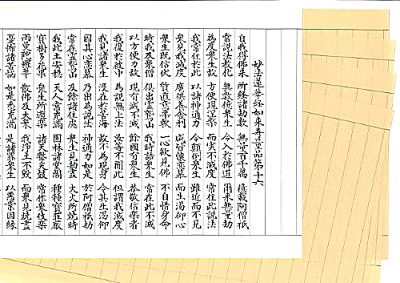 妙法蓮華経如来寿量品第十六
自我得佛来 所経諸劫数 無量百千萬 億載阿僧祇
常説法教化 無数億衆生 令入於佛道 爾来無量劫
為度衆生故 方便現涅槃 而実不滅度 常住此説法
我常住於此 以諸神通力 令顛倒衆生 雖近而不見
衆見我滅度 廣供養舎利 咸皆懐恋慕 而生渇仰心
衆生既信伏 質直意柔軟 一心欲見佛 不自惜身命
時我及衆僧 倶出霊鷲山 我時語衆生 常在此不滅
以方便力故 現有滅不滅 餘國有衆生 恭敬信樂者
我復於彼中 為説無上法 汝等不聞此 但謂我滅度
我見諸衆生 没在於苦海 故不為現身 令其生渇仰
因其心恋慕 乃出為説法 神通力如是 於阿僧祇劫
常在霊鷲山 及餘諸住處 衆生見劫盡 大火所焼時
我此土安穏 天人常充満 園林諸堂閣 種種寶荘厳
寶樹多花菓 衆生所遊樂 諸天撃天鼓 常作衆伎樂
雨曼陀羅華 散佛及大衆 我浄土不毀 而衆見焼盡
憂怖諸苦悩 如是悉充満 是諸罪衆生 以悪業因縁